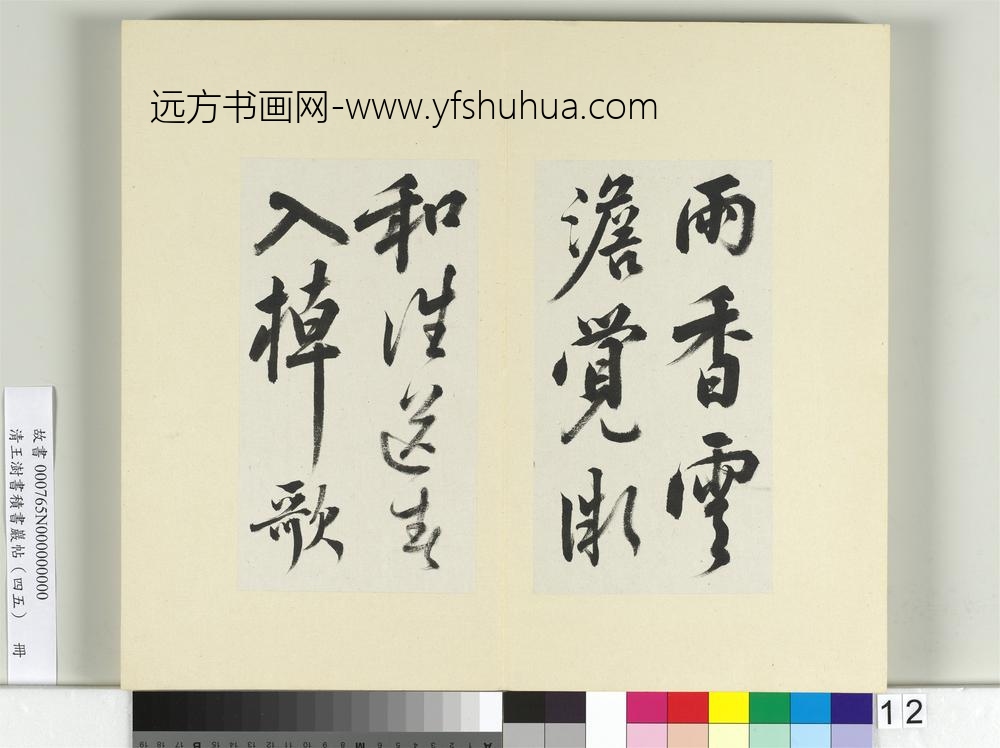 远方书画网-www.yfshuhua.com
雨香雲
澹覺微
和誰送春
入棹歌
故書 000765N000000000
清王澍書積書巖帖（四五） 冊
12